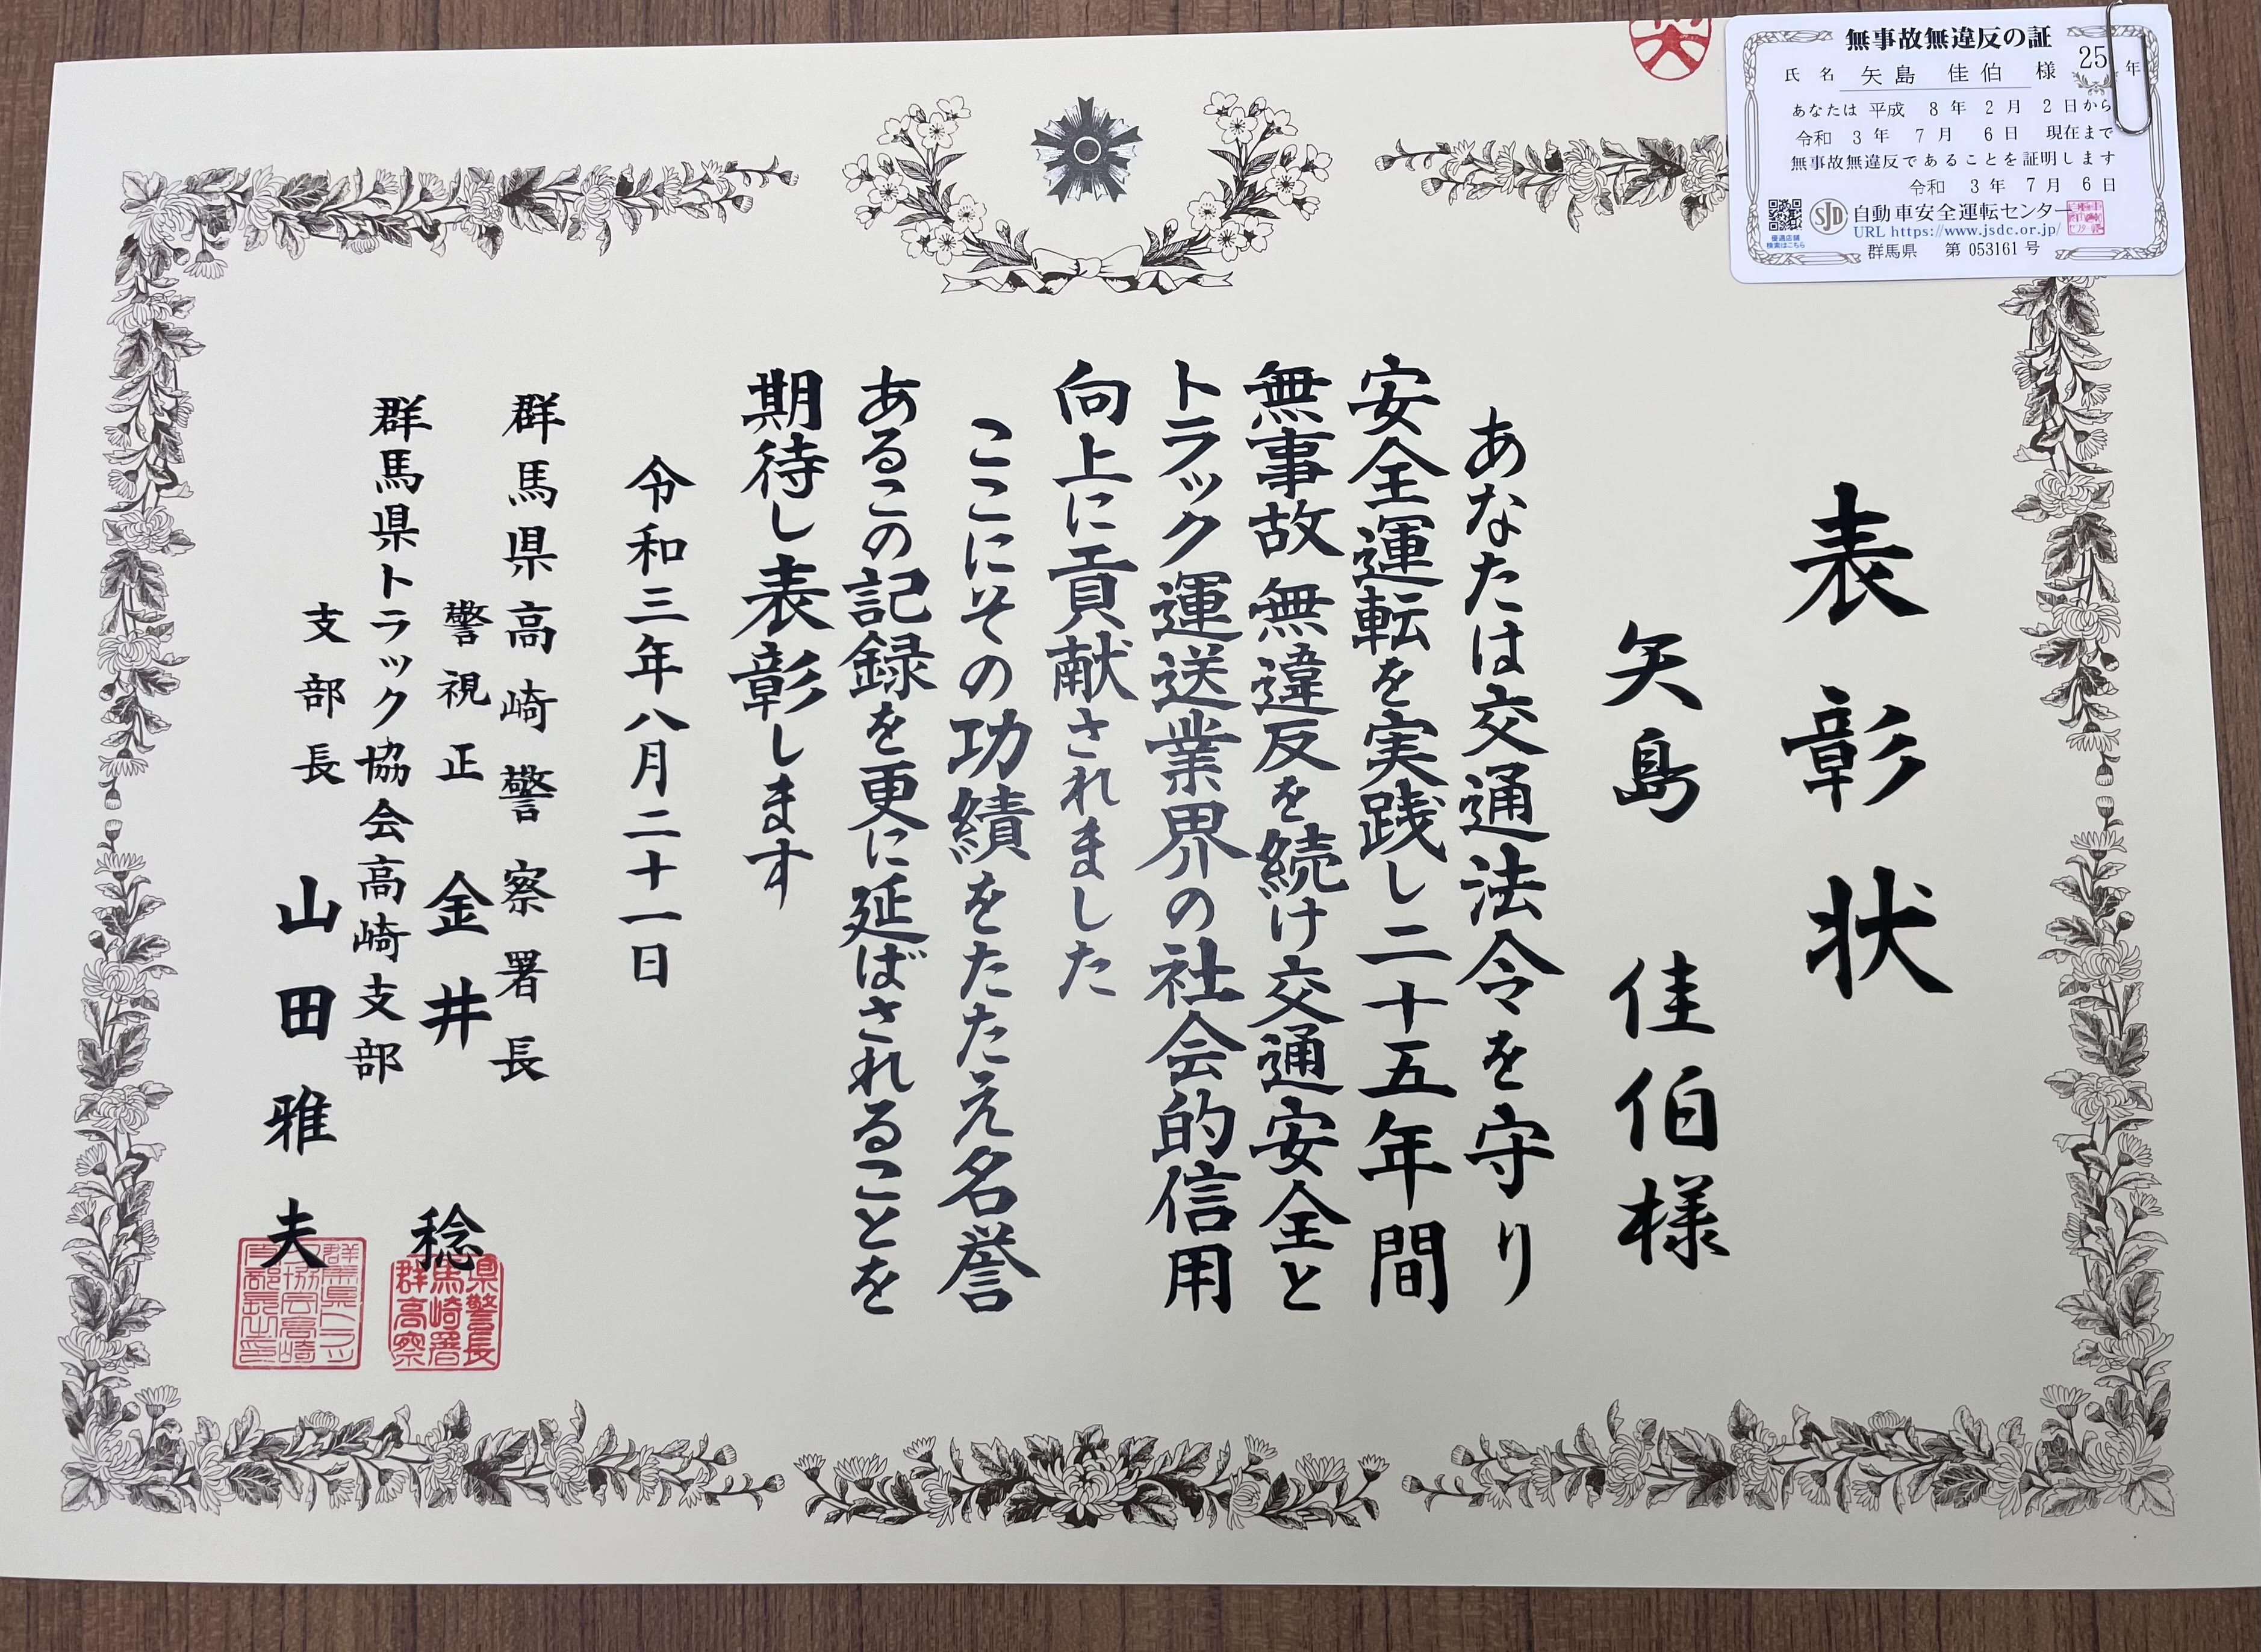 表彰状
矢島 佳伯様
あなたは交通法令を守り
安全運転を実践し二十五年間
無事故無違反を続け交通安全と
トラック運送業界の社会的信用
向上に貢献されました
ここにその功績をたたえ名誉
あるこの記録を更に延ばされることを
期待し表彰します
令和三年八月二十一日
群馬県高崎警察署長
警視正 金井 稔
群馬県トラック協会高崎支部
支部長 山田雅夫
無事故無違反の証
氏名 矢島 佳伯 様 25年
あなたは 平成 8年 2月 2日から
令和 3年 7月 6日 現在まで
無事故無違反であることを証明します
令和 3年 7月 6日
SJD 自動車安全運転センター
URL https://www.jsdc.or.jp/
優遇店舗
検索はこちら
群馬県 第 053161 号